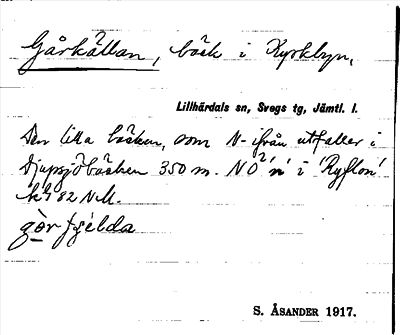 Gårkällan, bäck i Kyrkbyn,
Lillhärdals sn, Svegs tg, Jämtl. l.
Den lilla bäcken, som N-ifrån utfaller i
Djupsjöbäcken 350 m. NO 'n' i 'Ryflon'
82 N.M.
gòr
S. ÅSANDER 1917.